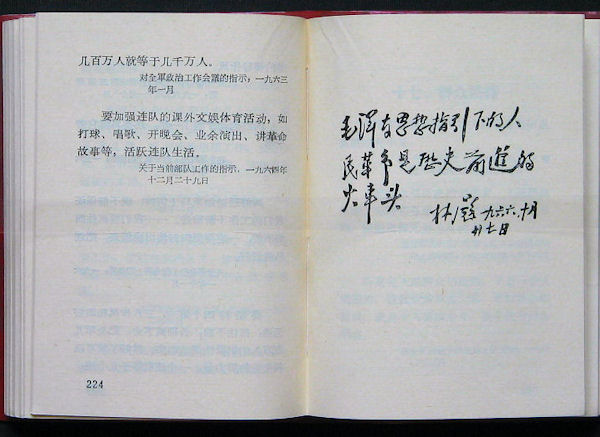 几百万人就等于几千万人。
对全军政治工作会议的指示，一九六三
年一月
要加强连队的课外文娱体育活动，如
打球、唱歌、开晚会、业余演出、讲革命
故事等，活跃连队生活。
关于当前部队工作的指示，一九六四年
十二月二十九日
224
毛泽东思想指引下的人
民革命是历史前进的
火车头
林彪 一九六六、十月
廿七日